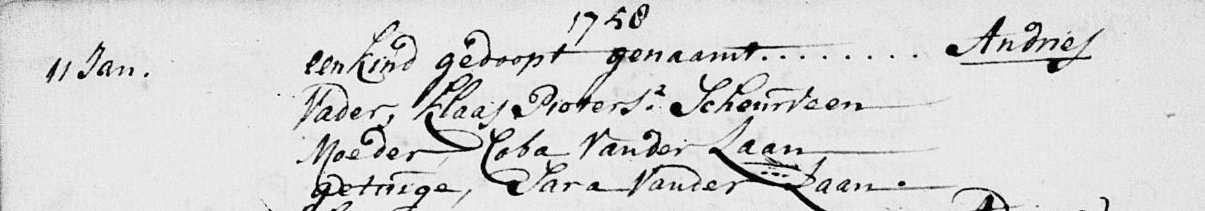 1758
11 Jan. een kind gedoopt genaamt........ Andries
Vader, Klaas Pieters:z Scheurveen
Moeder, Coba Vander Laan
getuige, Sara Vander Laan.